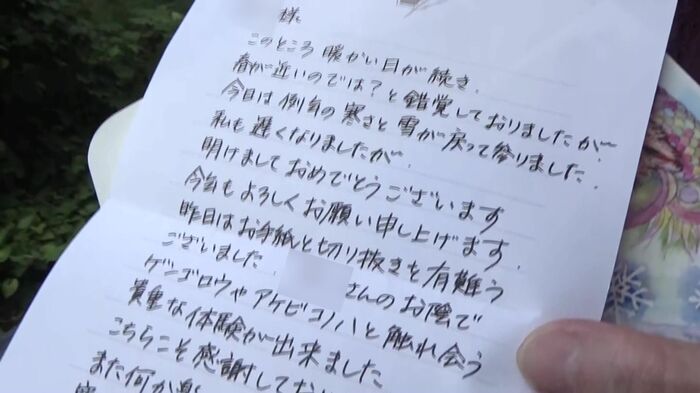 様
このところ 暖かい日が続き、
春が近いのでは？と錯覚しておりましたが、
今日は例年の寒さと雪が戻って参りました。
私も遅くなりましたが、
明けましておめでとうございます
今年もよろしくお願い申し上げます。
昨日はお手紙と切り抜きを有難う
ございました。
さんのお陰で
ゲンゴロウやアケビコノハと触れ会う
貴重な体験が出来ました
こちらこそ感謝してお
また何か楽